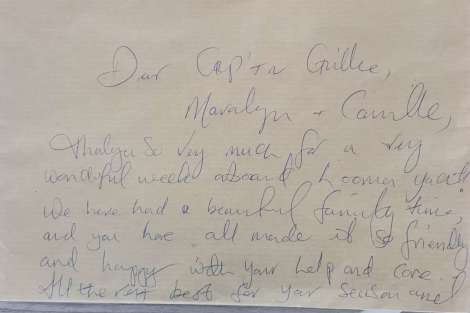 Dear Cap'tn
Maralyn + Camille,
Thankyou so very much for a very
wonderful week aboard yacht
We have had a beautiful family time,
and you have all made it so friendly
and happy with your help and care.
All the very best for your season and